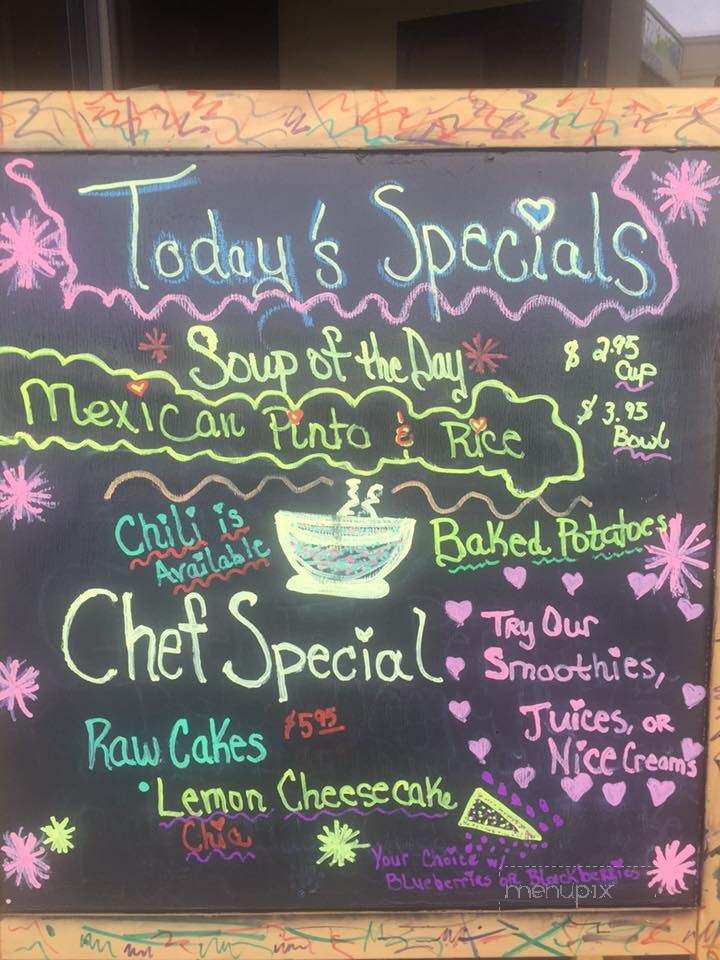 Today's Specials
Soup of the Day
$ 2.95
Cup
Mexican Pinto & Rice
$ 3.95
Bowl
Chili is
Available
Baked Potatoes
Chef Special
Try Our
Smoothies,
Juices, or
Nice Creams
Raw Cakes $5.95
• Lemon Cheesecake
Chia
Your Choice w/
Blueberries or Blackberries
menupix